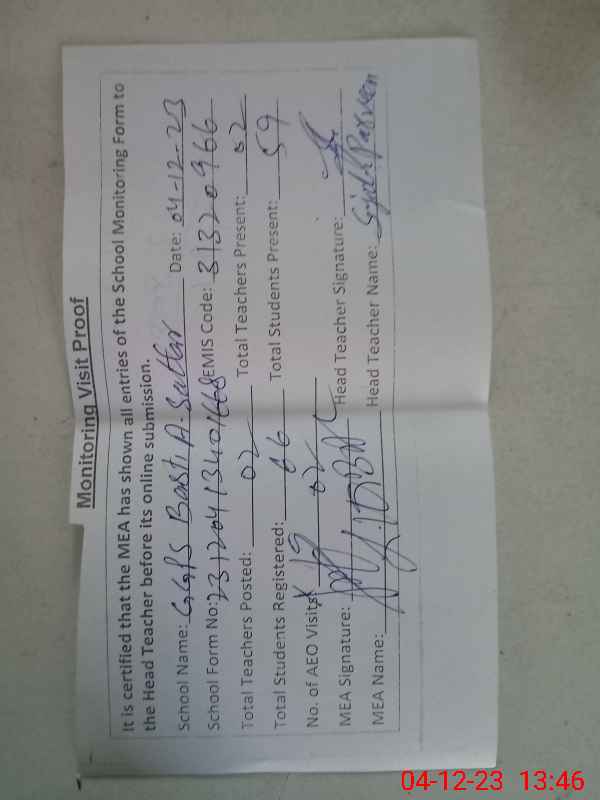 Monitoring Visit Proof
It is certified that the MEA has shown all entries of the School Monitoring Form to
the Head Teacher before its online submission.
School Name: GGPS Basti A. Sattar Date: 04-12-23
School Form No: EMIS Code: 31320966
Total Teachers Posted: 02 Total Teachers Present: 02
Total Students Registered: 66 Total Students Present: 59
No. of AEO Visits: 02
MEA Signature: Head Teacher Signature:
MEA Name: Head Teacher Name: Parveen
04-12-23 13:46